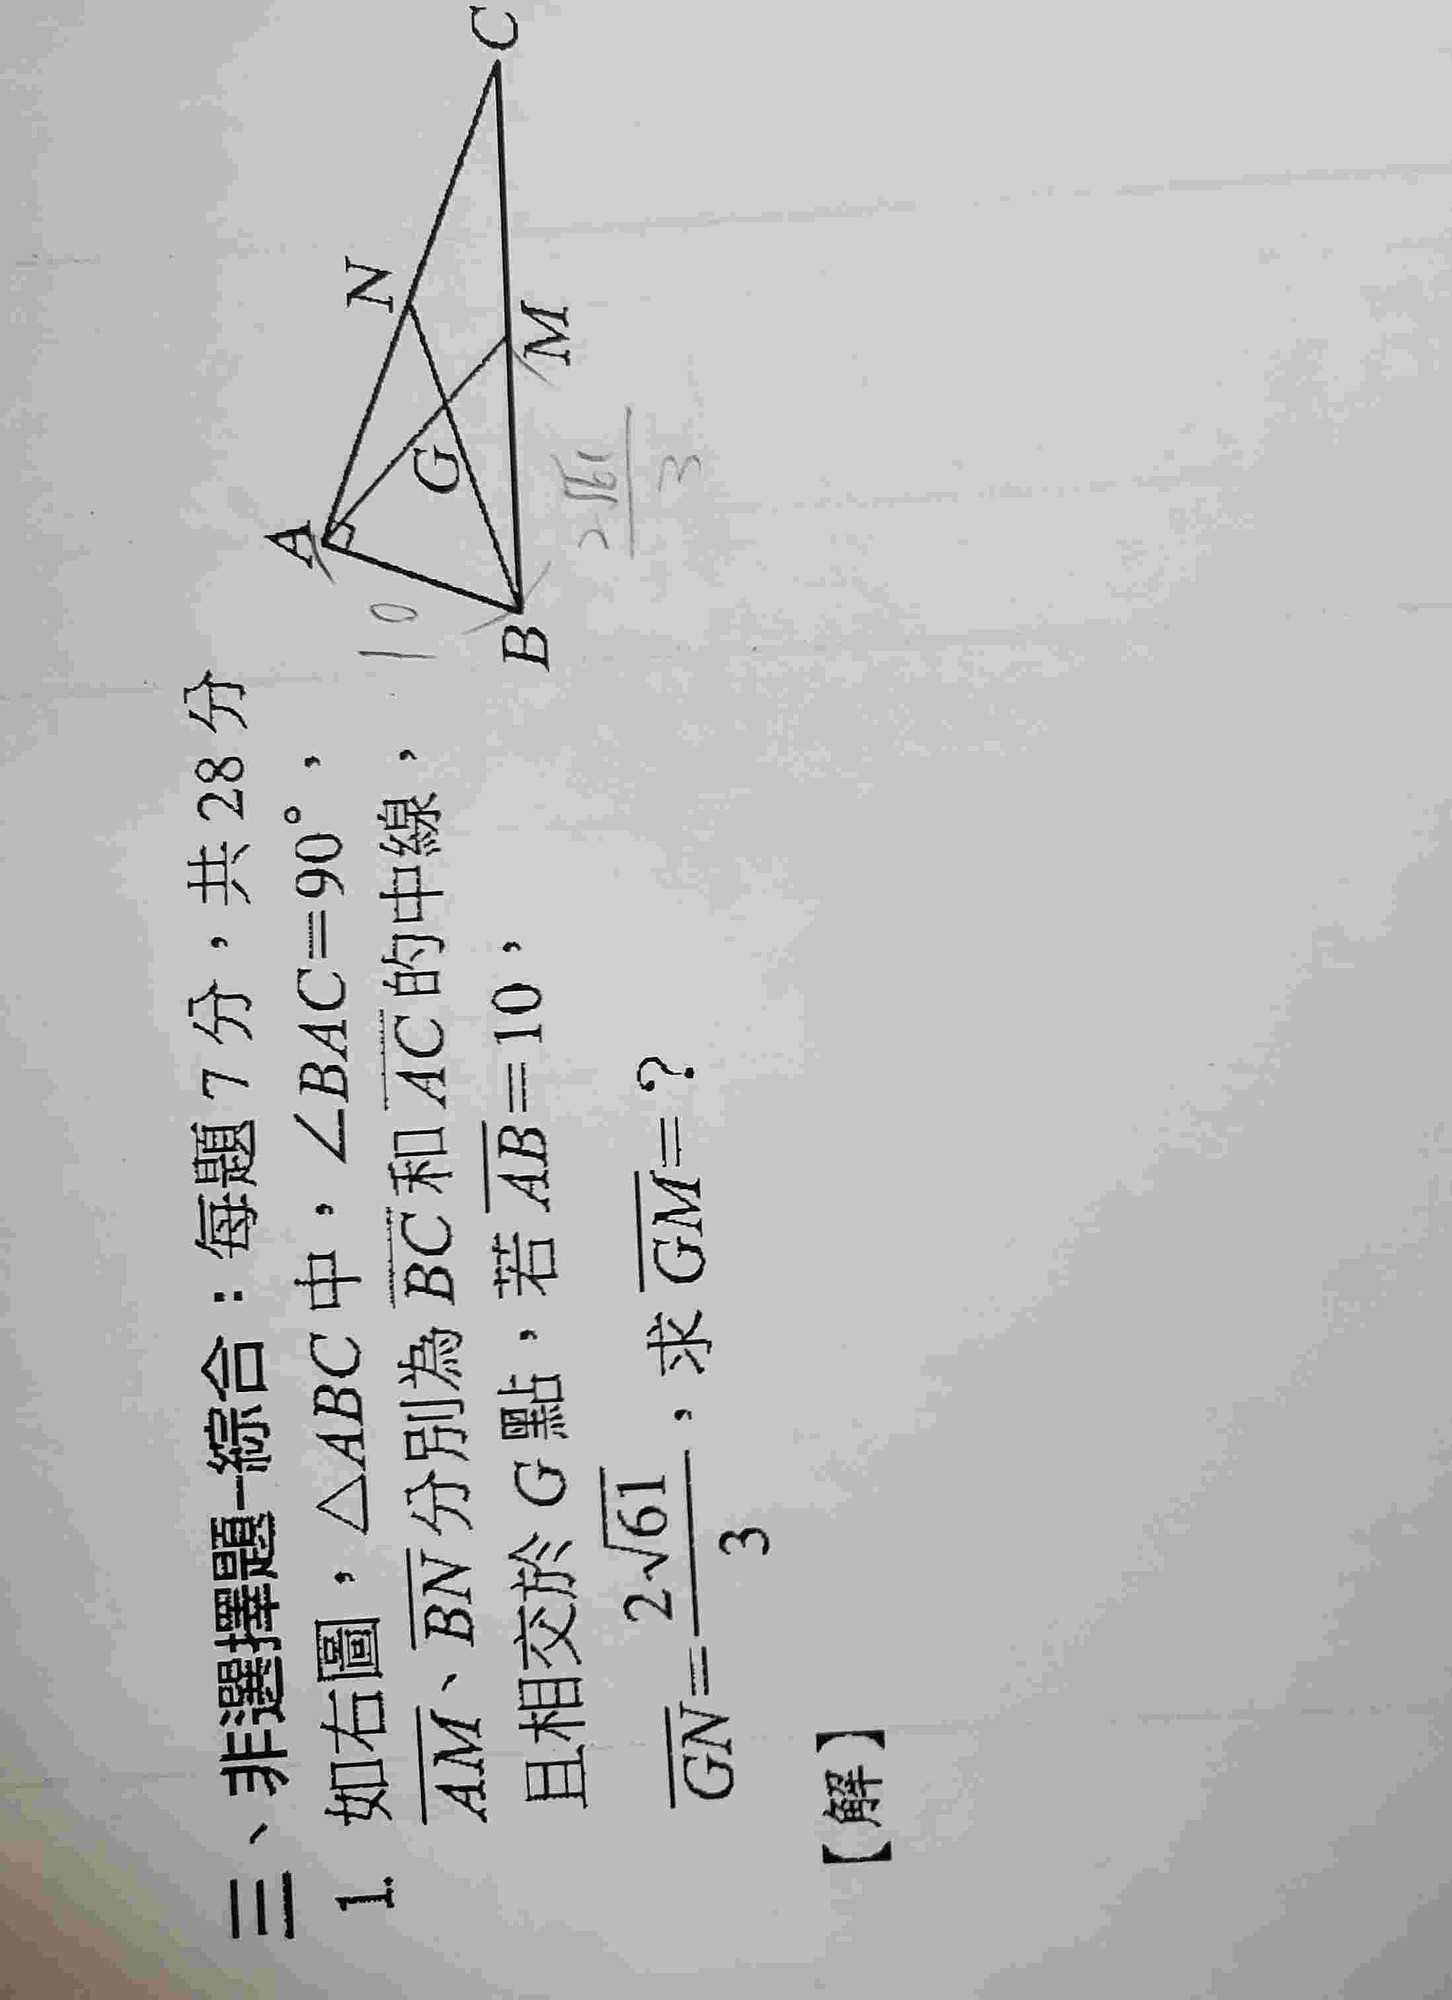 三、非選擇題-綜合：每題 7 分，共 28 分
1. 如右圖，△ABC 中，∠BAC=90°，
AM、BN 分別為 BC 和 AC 的中線，
且相交於 G 點，若 AB=10，
GN=2√61/3，求 GM=？
【解】
A
N
C
G
B
M
10
2√61
3